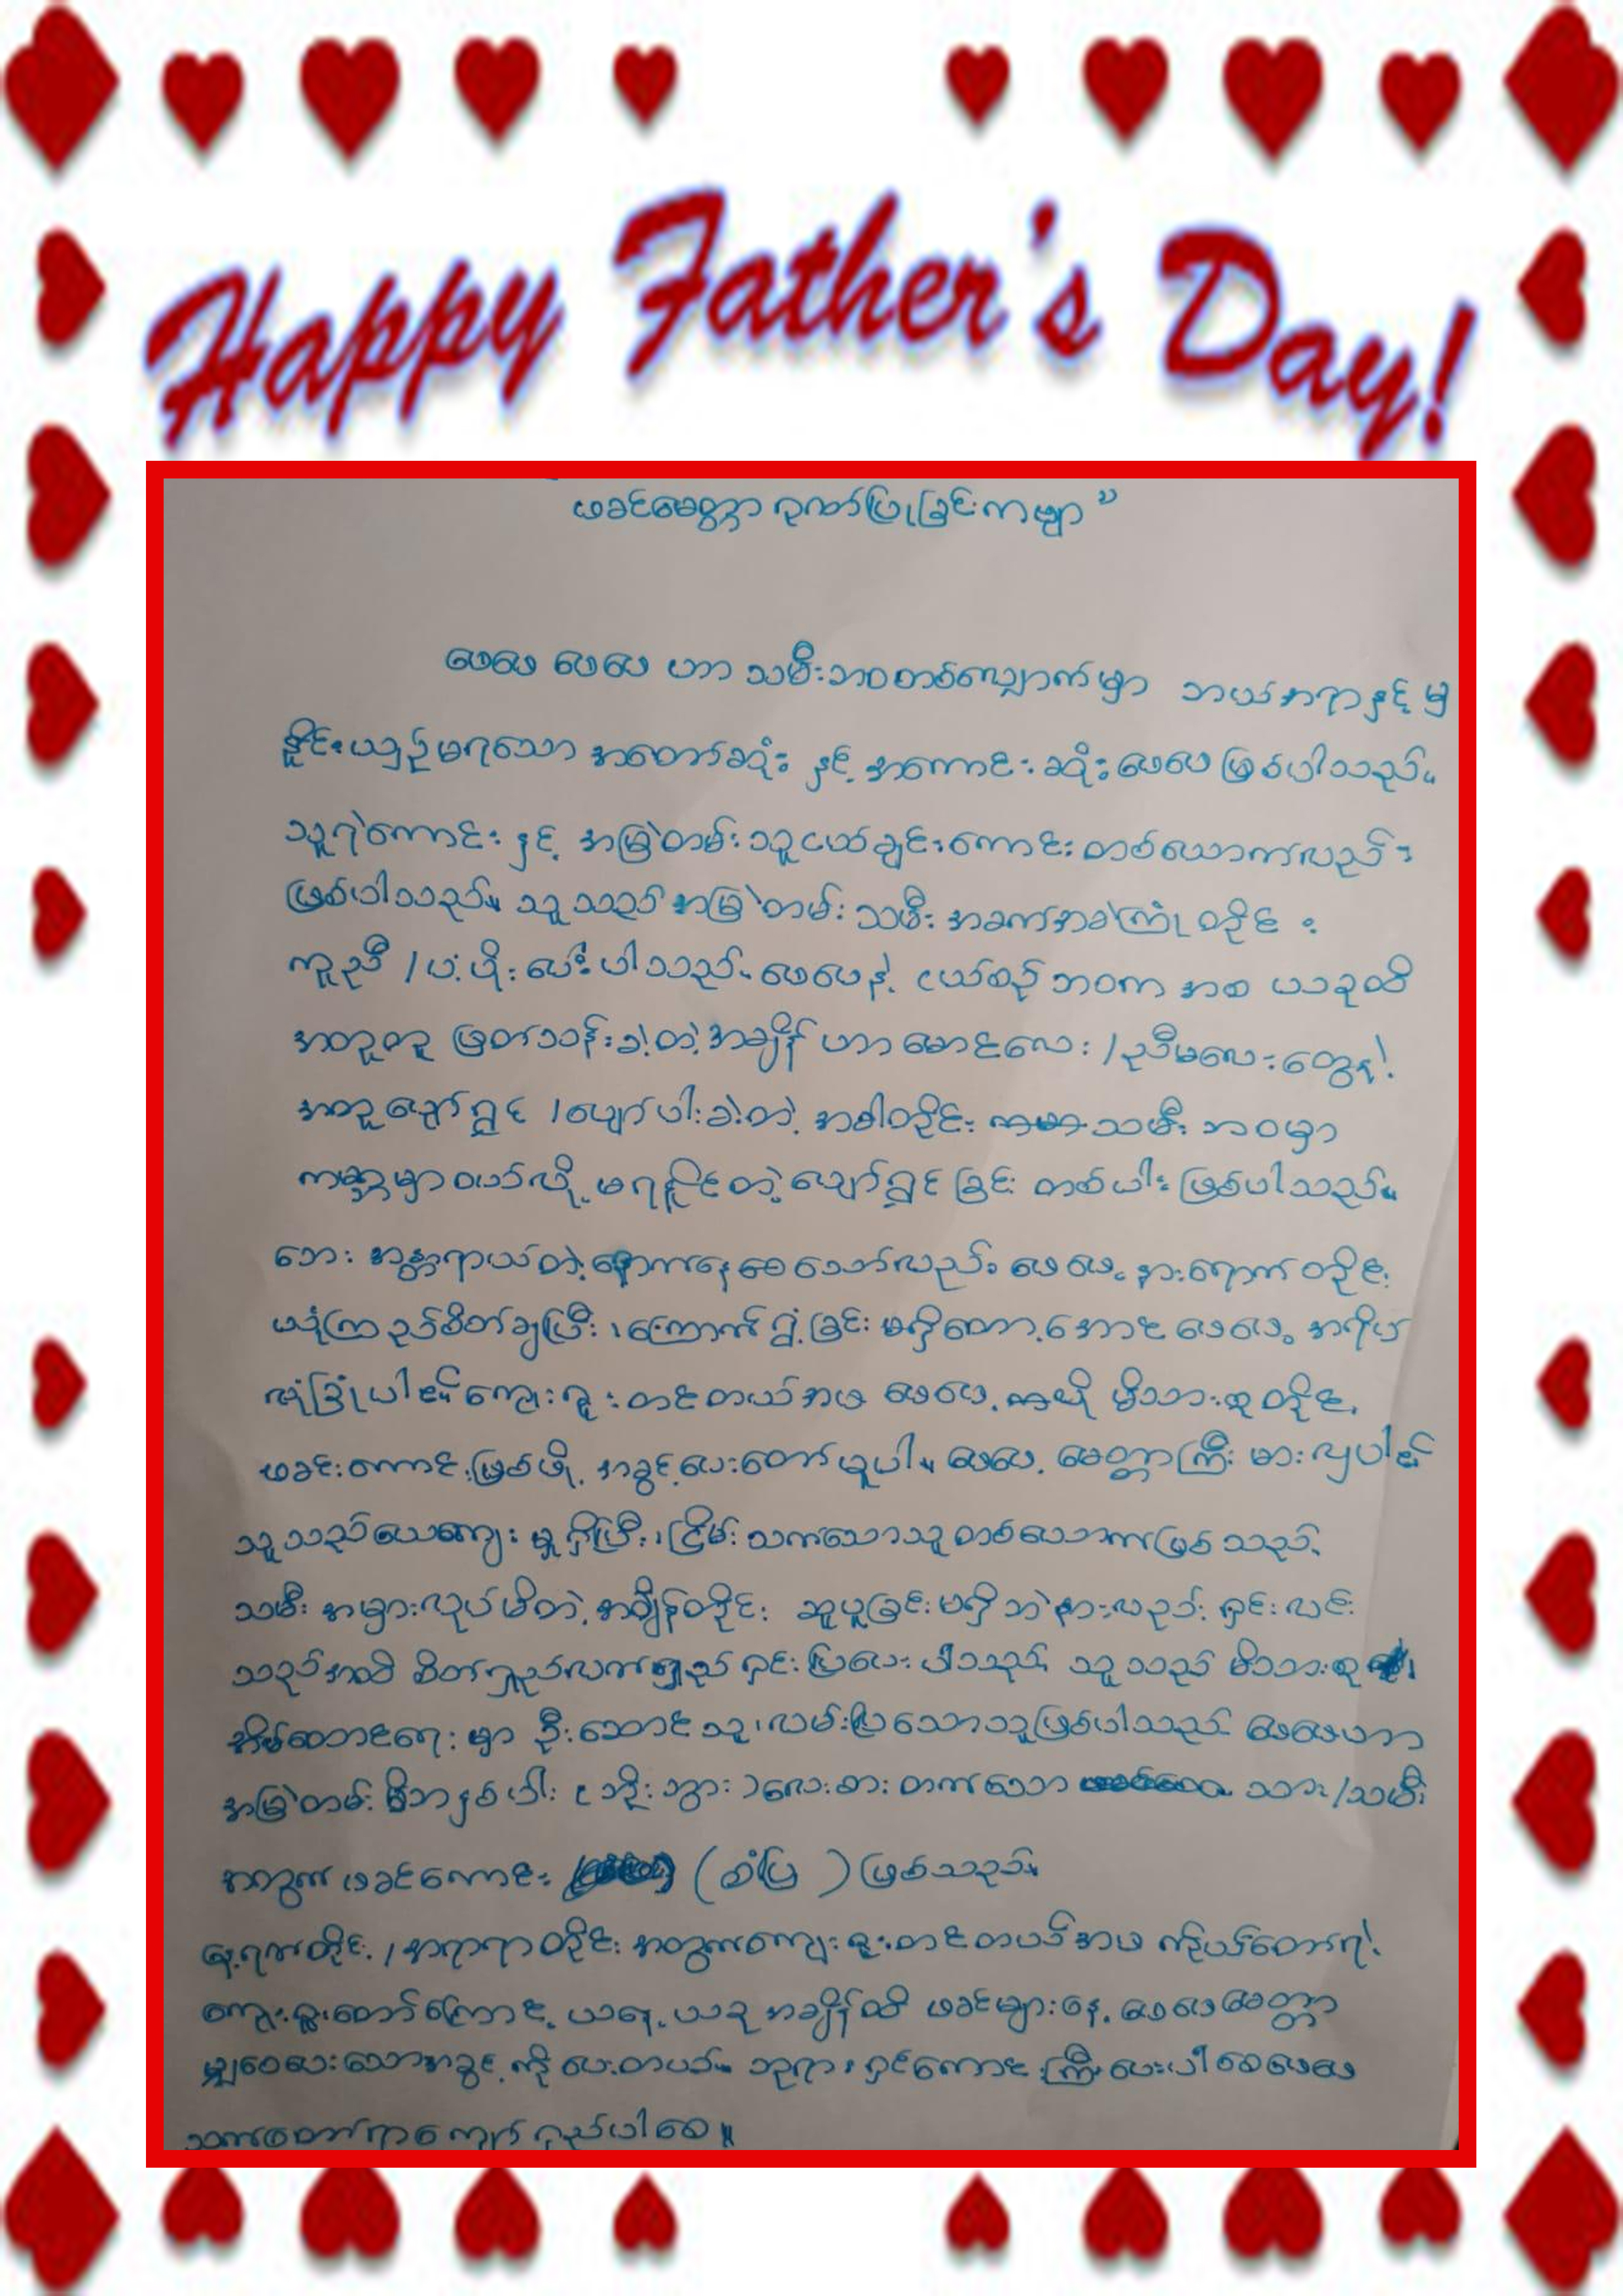 Happy Father's Day!
ဖခင်မေတ္တာ ဂုဏ်ပြုခြင်းကဗျာ"
ဖေဖေ ဖေဖေ ဟာ သမီးဘဝတစ်လျှောက်မှာ ဘယ်အရာနှင့်မျှ
နှိုင်းယှဉ်မရသော အတော်ဆုံး နှင့် အကောင်းဆုံးဖေဖေ ဖြစ်ပါသည်။
သူရဲကောင်း နှင့် အမြဲတမ်း သူငယ်ချင်းကောင်း တစ်ယောက်လည်း
ဖြစ်ပါသည်။ သူသည် အမြဲတမ်း သမီး အခက်အခဲကြုံတိုင်း
ကူညီ /ပံ့ပိုး ပေးပါသည်။ ဖေဖေနဲ့ ငယ်စဉ်ဘဝက အစ ယခုထိ
အတူတူ ဖြတ်သန်းခဲ့တဲ့အချိန် ဟာ မောင်လေး /ညီမလေးတွေနဲ့
အတူပျော်ရွှင် /ပျော်ပါးခဲ့တဲ့ အခါတိုင်း သမီး ဘဝမှာ
ကမ္ဘာမှာဝယ်လို့ မရနိုင်တဲ့ ပျော်ရွှင်ခြင်း တစ်ပါး ဖြစ်ပါသည်။
ဘေး အန္တရာယ်တဲ့နောက်နေစေသော်လည်း ဖေဖေ့ နားရောက်တိုင်း
ယုံကြည်စိတ်ချပြီး ၊ကြောက်ရွံ့ခြင်း မရှိတော့အောင် ဖေဖေ့ အရိပ်
လုံခြုံပါ၏ ကျေးဇူးတင်တယ်အဖ ဖေဖေ့ ကို မိသားစုတိုင်း
ဖခင်ကောင်းဖြစ်ဖို့ အခွင့်ပေးတော်မူပါ။ ဖေဖေ့ မေတ္တာကြီးမားလှပါ၏
သူသည်ယဉ်ကျေးမှု ရှိပြီး ၊ငြိမ်းသက်သောသူတစ်ယောက်ဖြစ်သည်
သမီး အမှားလုပ်မိတဲ့အချိန်တိုင်း ဆူပူခြင်းမရှိဘဲနားလည်း ရှင်းလင်း
သည်အထိ စိတ်ရှည်လက်ရှည် ရှင်းပြပေးပါသည် သူသည် မိသားစု
အိမ်ထောင်ရေးမှာ ဦးဆောင်သူ၊လမ်းပြသောသူဖြစ်ပါသည် ဖေဖေဟာ
အမြဲတမ်း မိဘနှစ်ပါး (ဘိုးဘွား)လေးစားတက်သော သား/သမီး
အတွက် ဖခင်ကောင်း (စံပြ) ဖြစ်သည်။
နေ့ရက်တိုင်း /အရာရာတိုင်း အတွက်ကျေးဇူးတင်တယ်အဖ ကိုယ်တော်ရဲ့
ကျေးဇူးတော်ကြောင့် ယနေ့ ယခုအချိန်ထိ ဖခင်များနေ့ ဖေဖေမေတ္တာ
မျှဝေပေးသောအခွင့်ကို ပေးတယ်။ ဘုရားရှင်ကောင်းကြီးပေးပါစေဖေဖေ
သက်တော်ရာကျော်ရှည်ပါစေ။